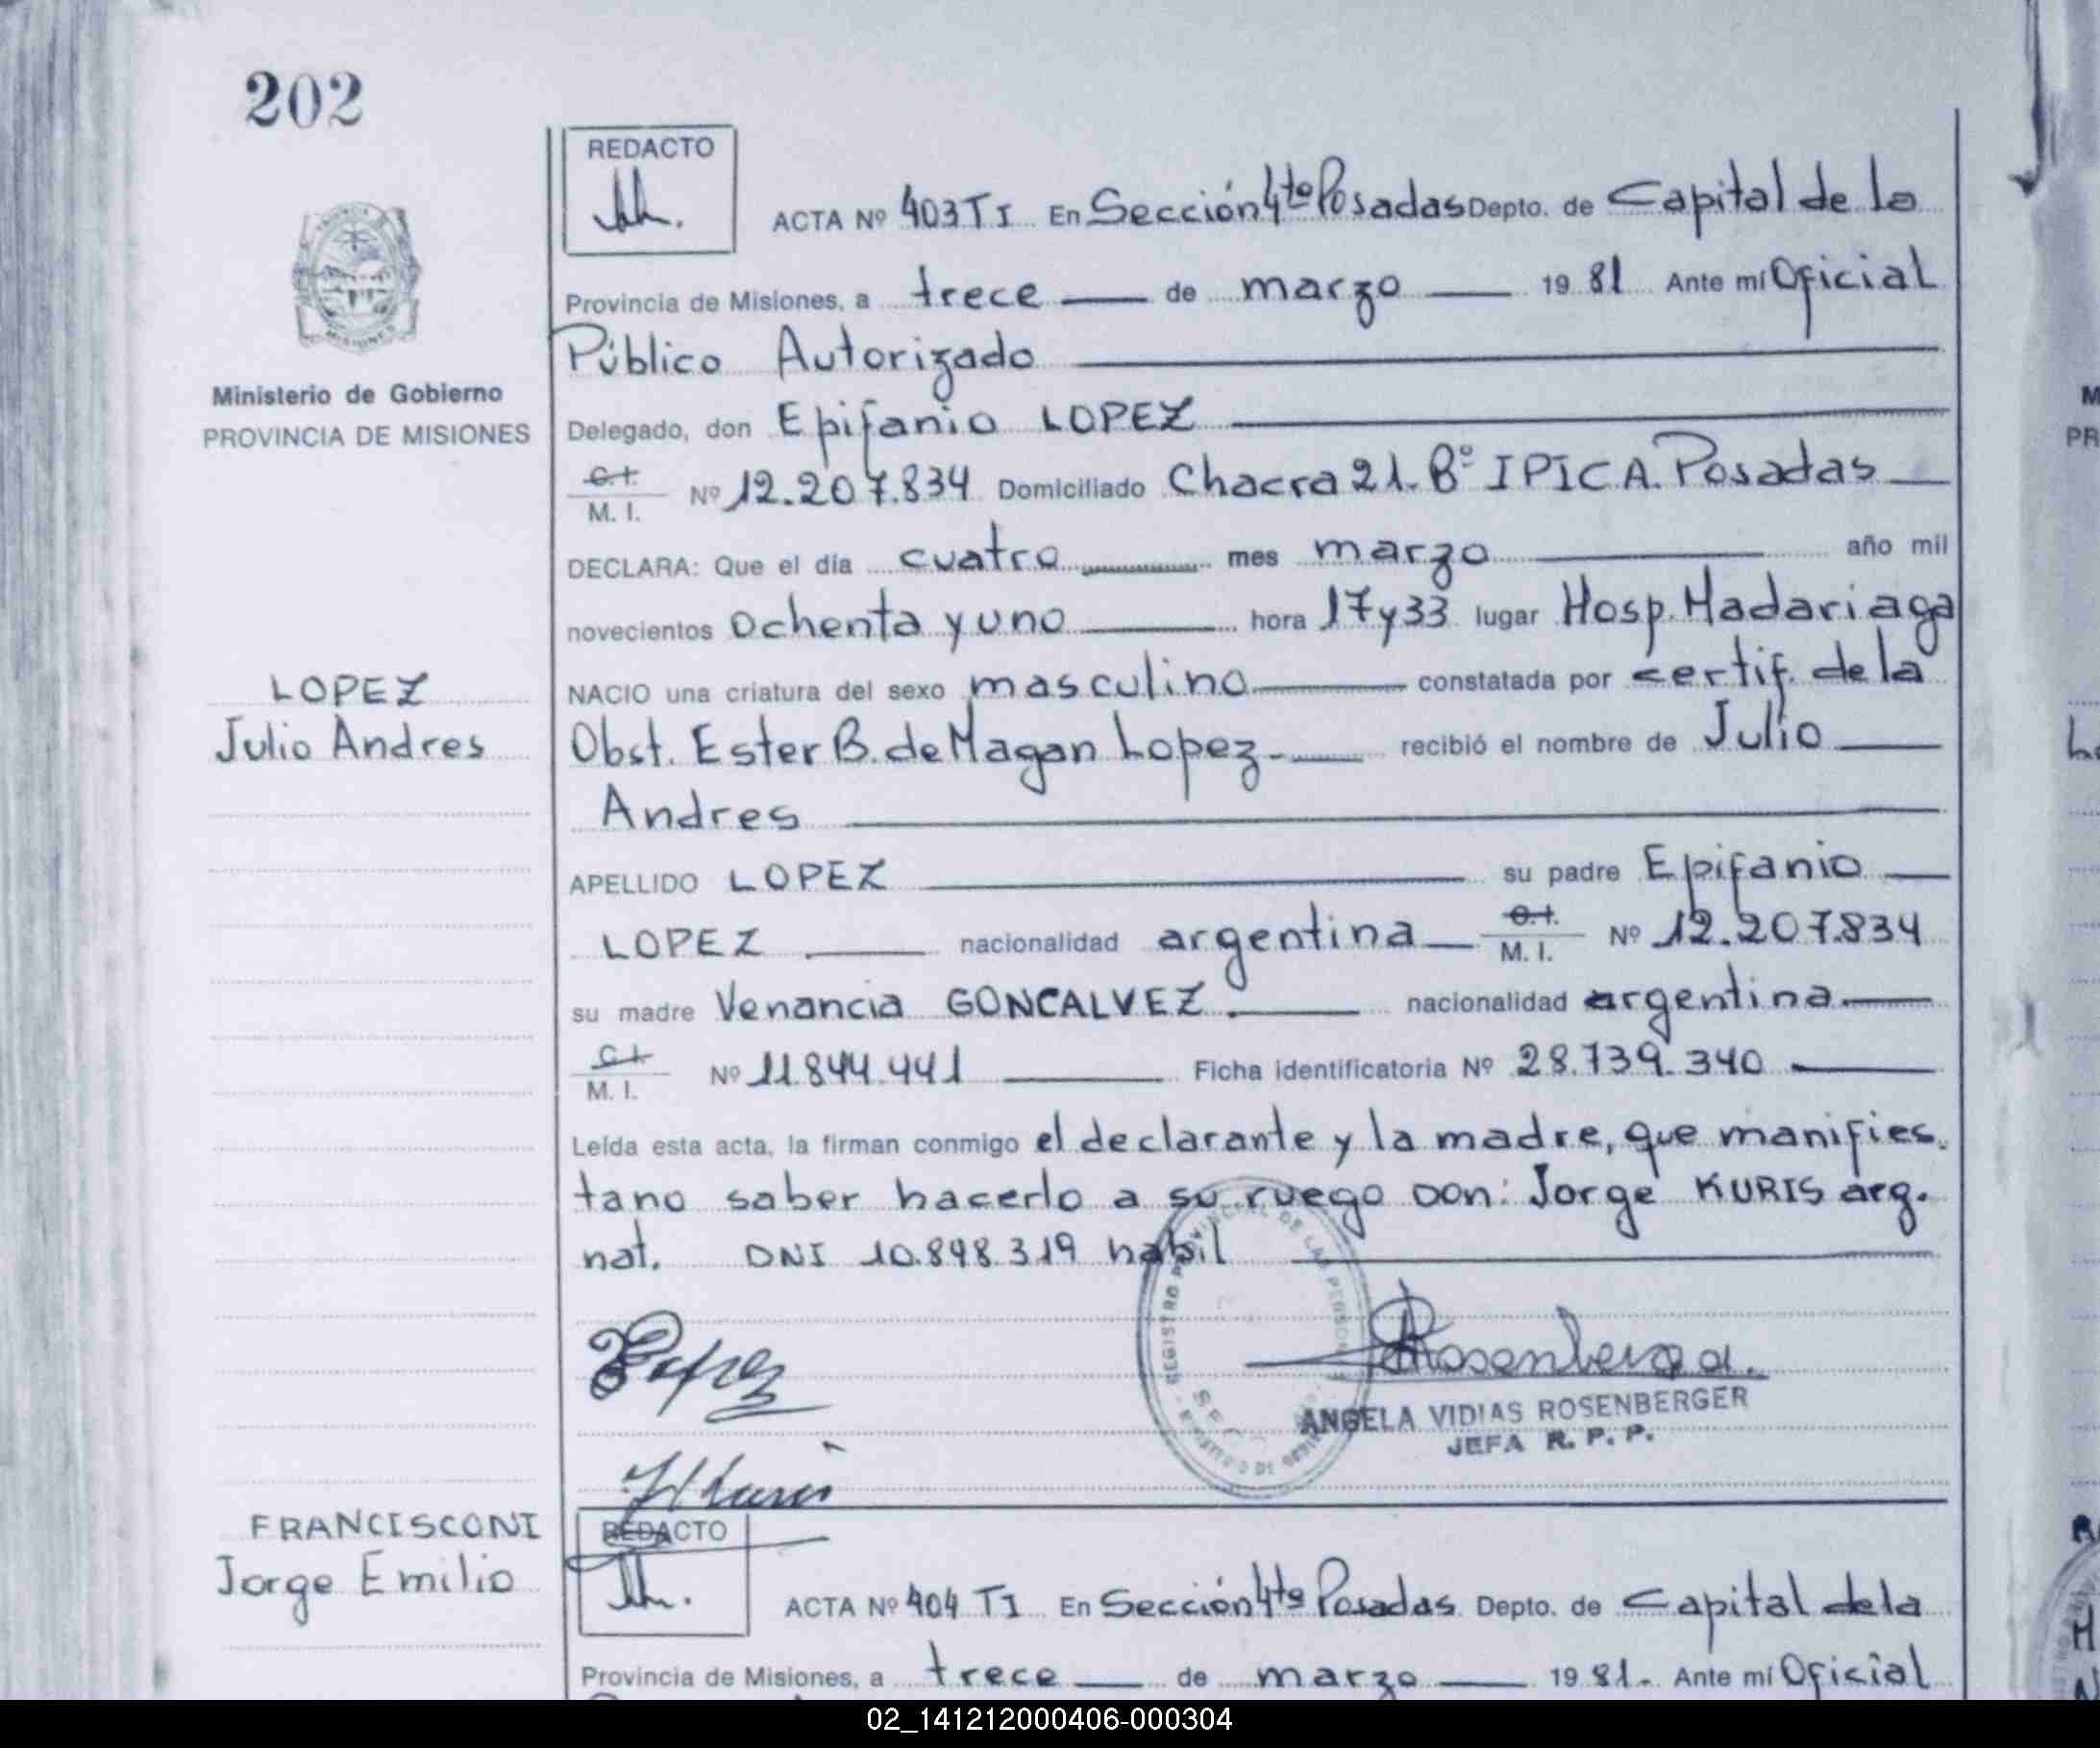 202
REDACTO
ACTA Nº 403 TI En Sección 4ta Posadas Depto. de Capital de la
Provincia de Misiones, a trece de marzo 1981 Ante mí Oficial
Público Autorizado
Ministerio de Gobierno
PROVINCIA DE MISIONES
Delegado, don Epifanio LOPEZ
C.I. M. I. Nº 12.207.834 Domiciliado Chacra 21. Bº IPICA. Posadas
DECLARA: Que el día cuatro mes marzo año mil
novecientos ochenta y uno hora 17 y 33 lugar Hosp. Madariaga
LOPEZ
Julio Andres
NACIO una criatura del sexo masculino constatada por certif. de la
Obst. Ester B. de Magan Lopez recibió el nombre de Julio
Andres
APELLIDO LOPEZ su padre Epifanio
LOPEZ nacionalidad argentina C.I. M. I. Nº 12.207.834
su madre Venancia GONCALVEZ. nacionalidad argentina
C.I. M. I. Nº 11.844.441 Ficha identificatoria Nº 28.739.340
Leída esta acta, la firman conmigo el declarante y la madre, que manifies.
ta no saber hacerlo a su ruego Don: Jorge KURIS arg.
nat. DNI 10.898.319 habil
ANGELA VIDIAS ROSENBERGER
JEFA R. P. P.
FRANCISCONI
Jorge Emilio
REDACTO
ACTA Nº 404 TI En Sección 4ta Posadas Depto. de Capital de la
Provincia de Misiones, a trece de marzo 1981. Ante mí Oficial
02_141212000406-000304